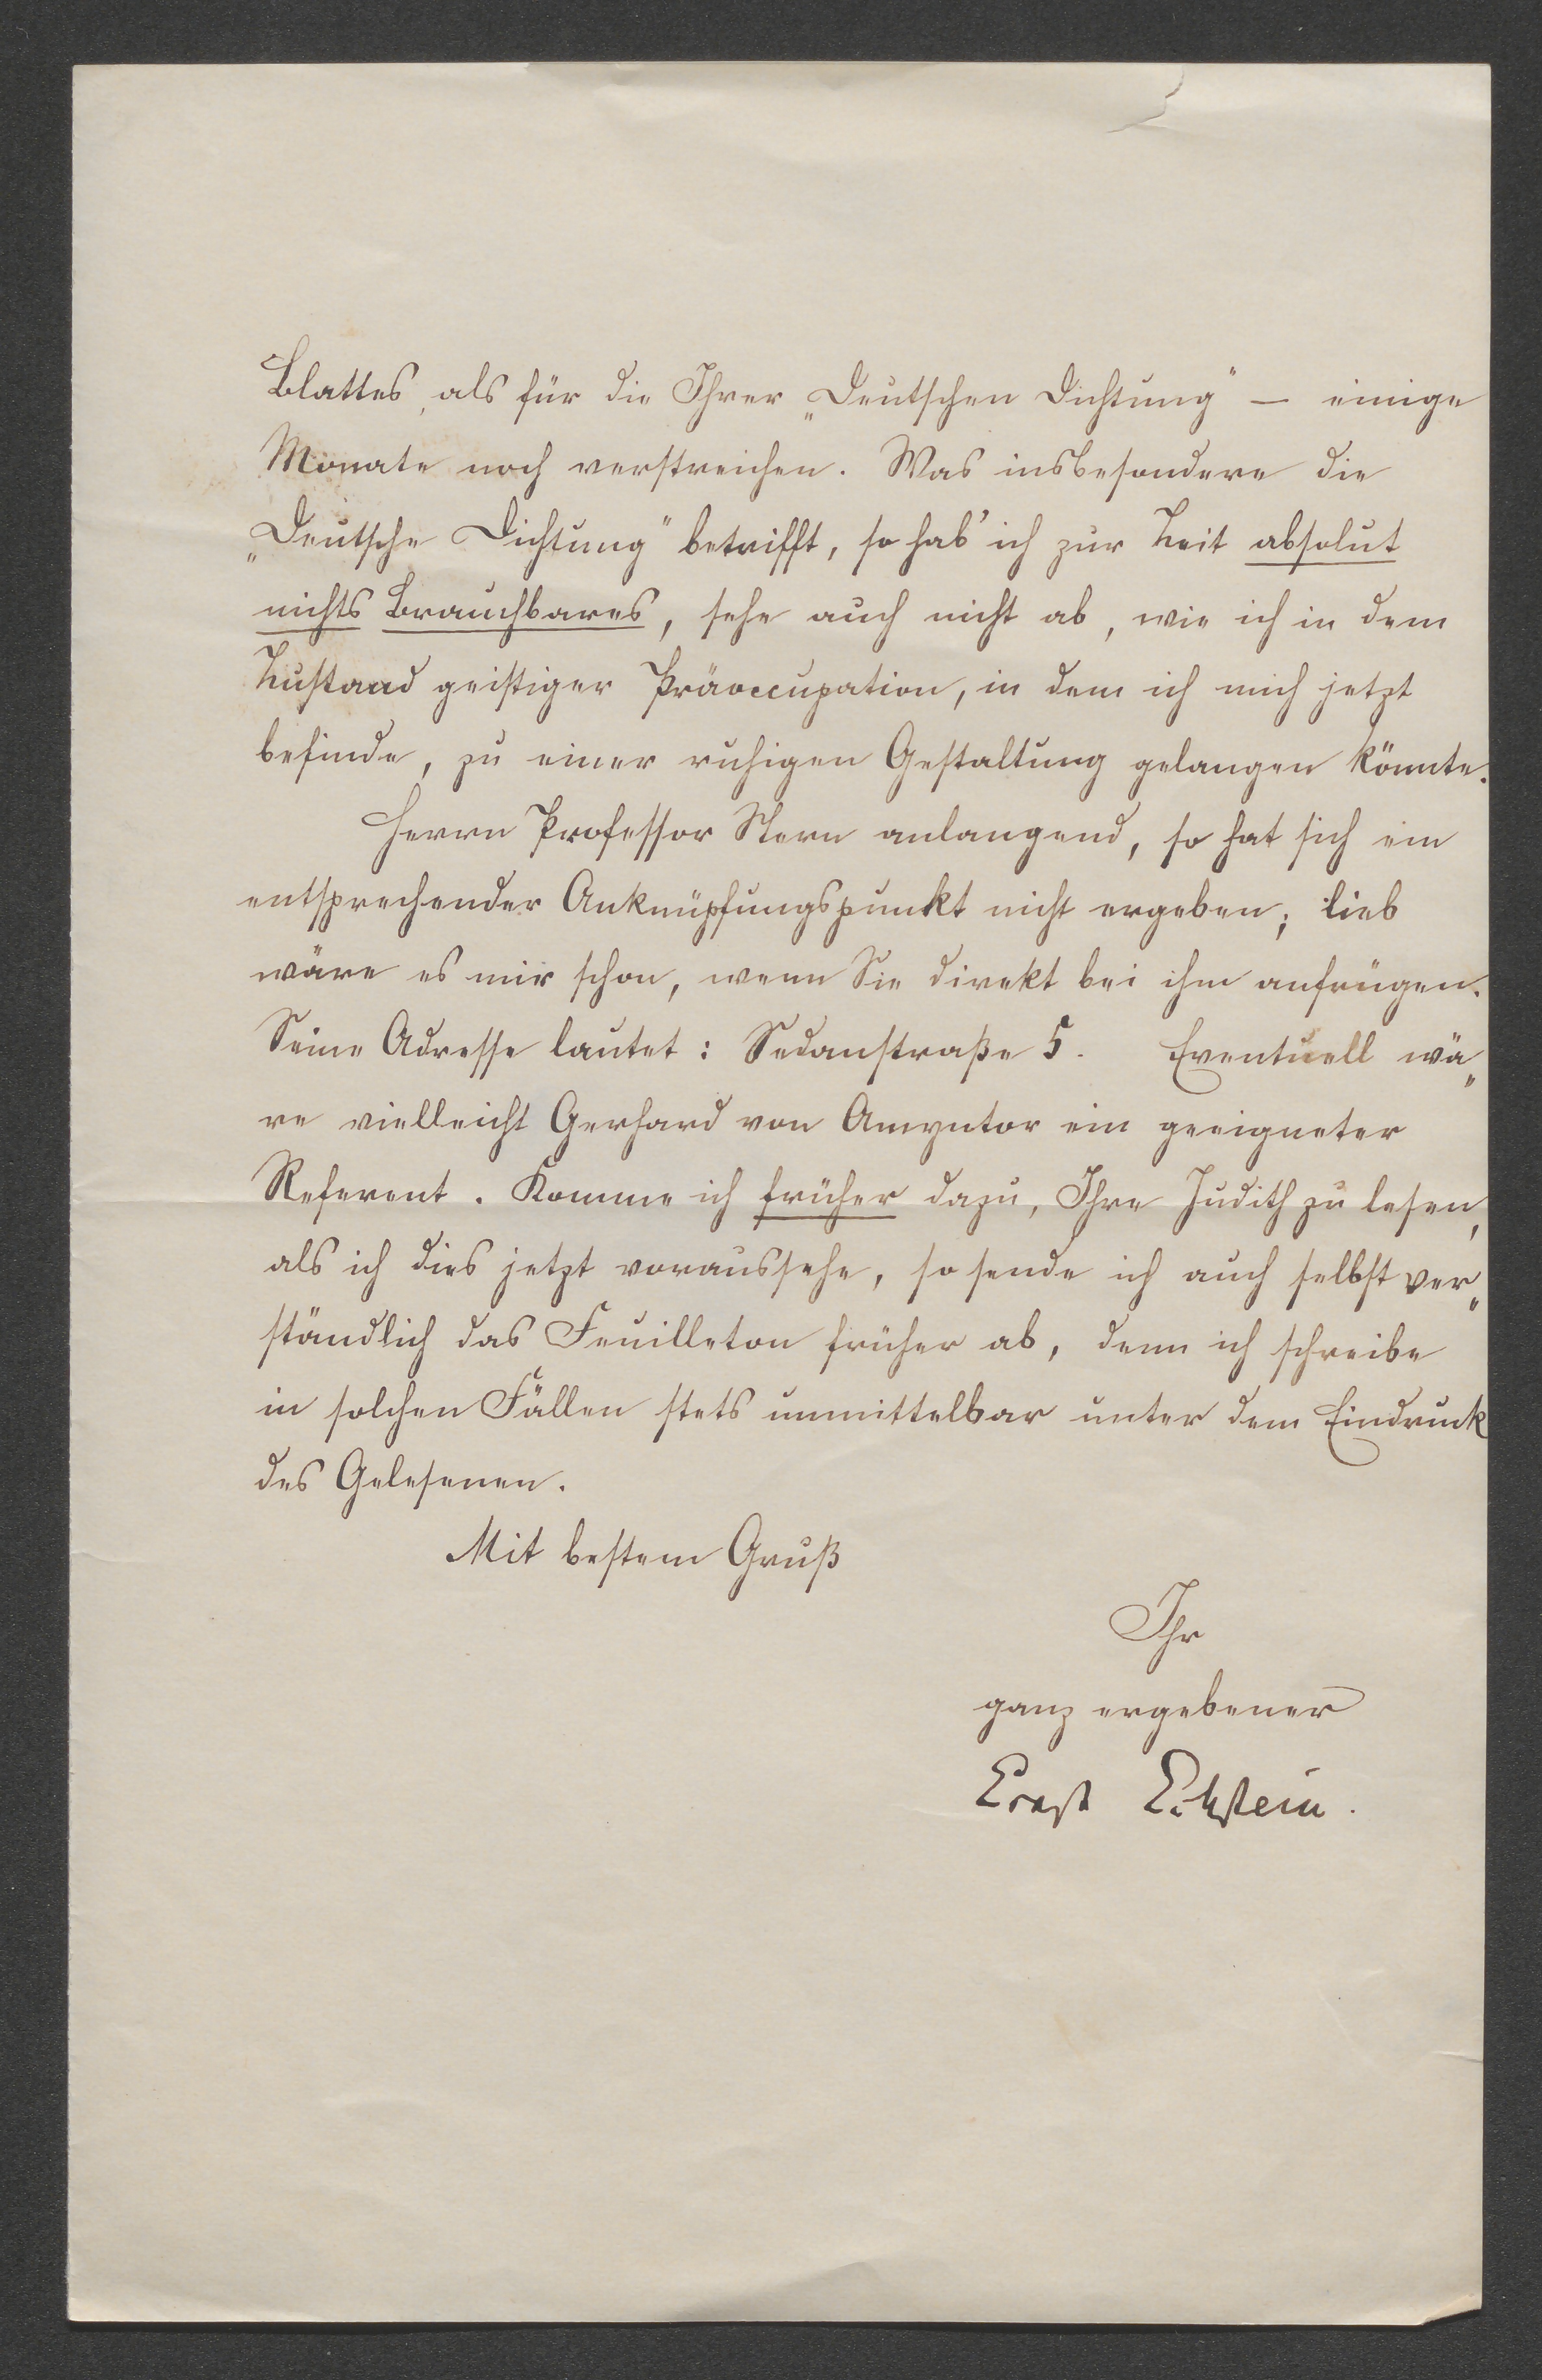 Blattes, als für die Ihrer „Deutschen Dichtung" — einige
Monate noch verstreichen. Was insbesondere die
„Deutsche Dichtung" betrifft, so hab' ich zur Zeit absolut
nichts Brauchbares, sehe auch nicht ab, wie ich in dem
Zustand geistiger Präoccupation, in dem ich mich jetzt
befinde, zu einer ruhigen Gestaltung gelangen könnte.
Herrn Professor Stern anlangend, so hat sich ein
entsprechender Anknüpfungspunkt nicht ergeben; lieb
wäre es mir schon, wenn Sie direkt bei ihm anfrügen.
Seine Adresse lautet: Sedanstraße 5. Eventuell wä„
re vielleicht Gerhard von Amyntor ein geeigneter
Referent. Komme ich früher dazu, Ihre Judith zu lesen,
als ich dies jetzt voraussehe, so sende ich auch selbstver„
ständlich das Feuilleton früher ab, denn ich schreibe
in solchen Fällen stets unmittelbar unter dem Eindruck
des Gelesenen.
Mit bestem Gruß
Ihr
ganz ergebener
Ernst Eckstein.